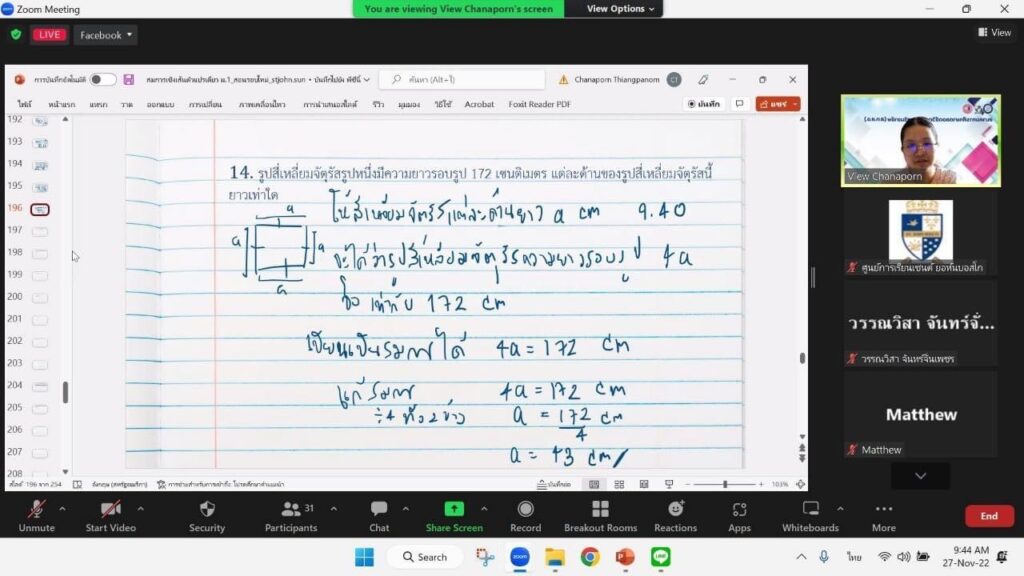 Zoom Meeting
You are viewing View Chanaporn's screen
View Options
LIVE
Facebook
View
การบันทึกอัตโนมัติ
สมการเชิงเส้นตัวแปรเดียว ม.1_สอนรอบใหม่_stjohn.sun • บันทึกไปยัง พีซีนี้
ค้นหา (Alt+ใ)
Chanaporn Thiangpanom
CT
ไฟล์ หน้าแรก แทรก วาด ออกแบบ การเปลี่ยน ภาพเคลื่อนไหว การนำเสนอสไลด์ รีวิว มุมมอง วิธีใช้ Acrobat Foxit Reader PDF
บันทึก
แชร์
192
193
194
195
196
197
198
199
200
201
202
203
204
205
206
207
208
14. รูปสี่เหลี่ยมจัตุรัสรูปหนึ่งมีความยาวรอบรูป 172 เซนติเมตร แต่ละด้านของรูปสี่เหลี่ยมจัตุรัสนี้
ยาวเท่าใด
a
a
a
a
ให้สี่เหลี่ยมจัตุรัสแต่ละด้านยาว a cm 9.40
จะได้ว่ารูปสี่เหลี่ยมจัตุรัสความยาวรอบรูป 4a
คือ เท่ากับ 172 cm
เขียนเป็นสมการได้ 4a = 172 cm
แก้สมการ 4a = 172 cm
÷4 ทั้ง 2 ข้าง a = 172/4 cm
a = 43 cm
สไลด์ 196 จาก 254
อังกฤษ (สหรัฐอเมริกา)
บันทึกย่อ
103%
View Chanaporn
ศูนย์การเรียนเซนต์ ยอห์นบอสโก
วรรณวิสา จันทร์จั่...
วรรณวิสา จันทร์จั่นเพชร
Matthew
Matthew
Unmute
Start Video
Security
31
Participants
Chat
Share Screen
Record
Breakout Rooms
Reactions
Apps
Whiteboards
More
End
Search
zoom
LINE
ไทย
9:44 AM
27-Nov-22